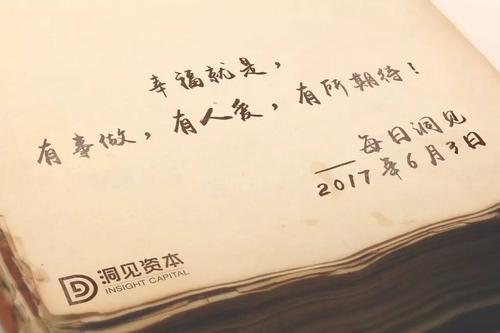 幸福就是，
有事做，有人爱，有所期待！
——每日洞见
2017年6月3日
洞见资本
INSIGHT CAPITAL